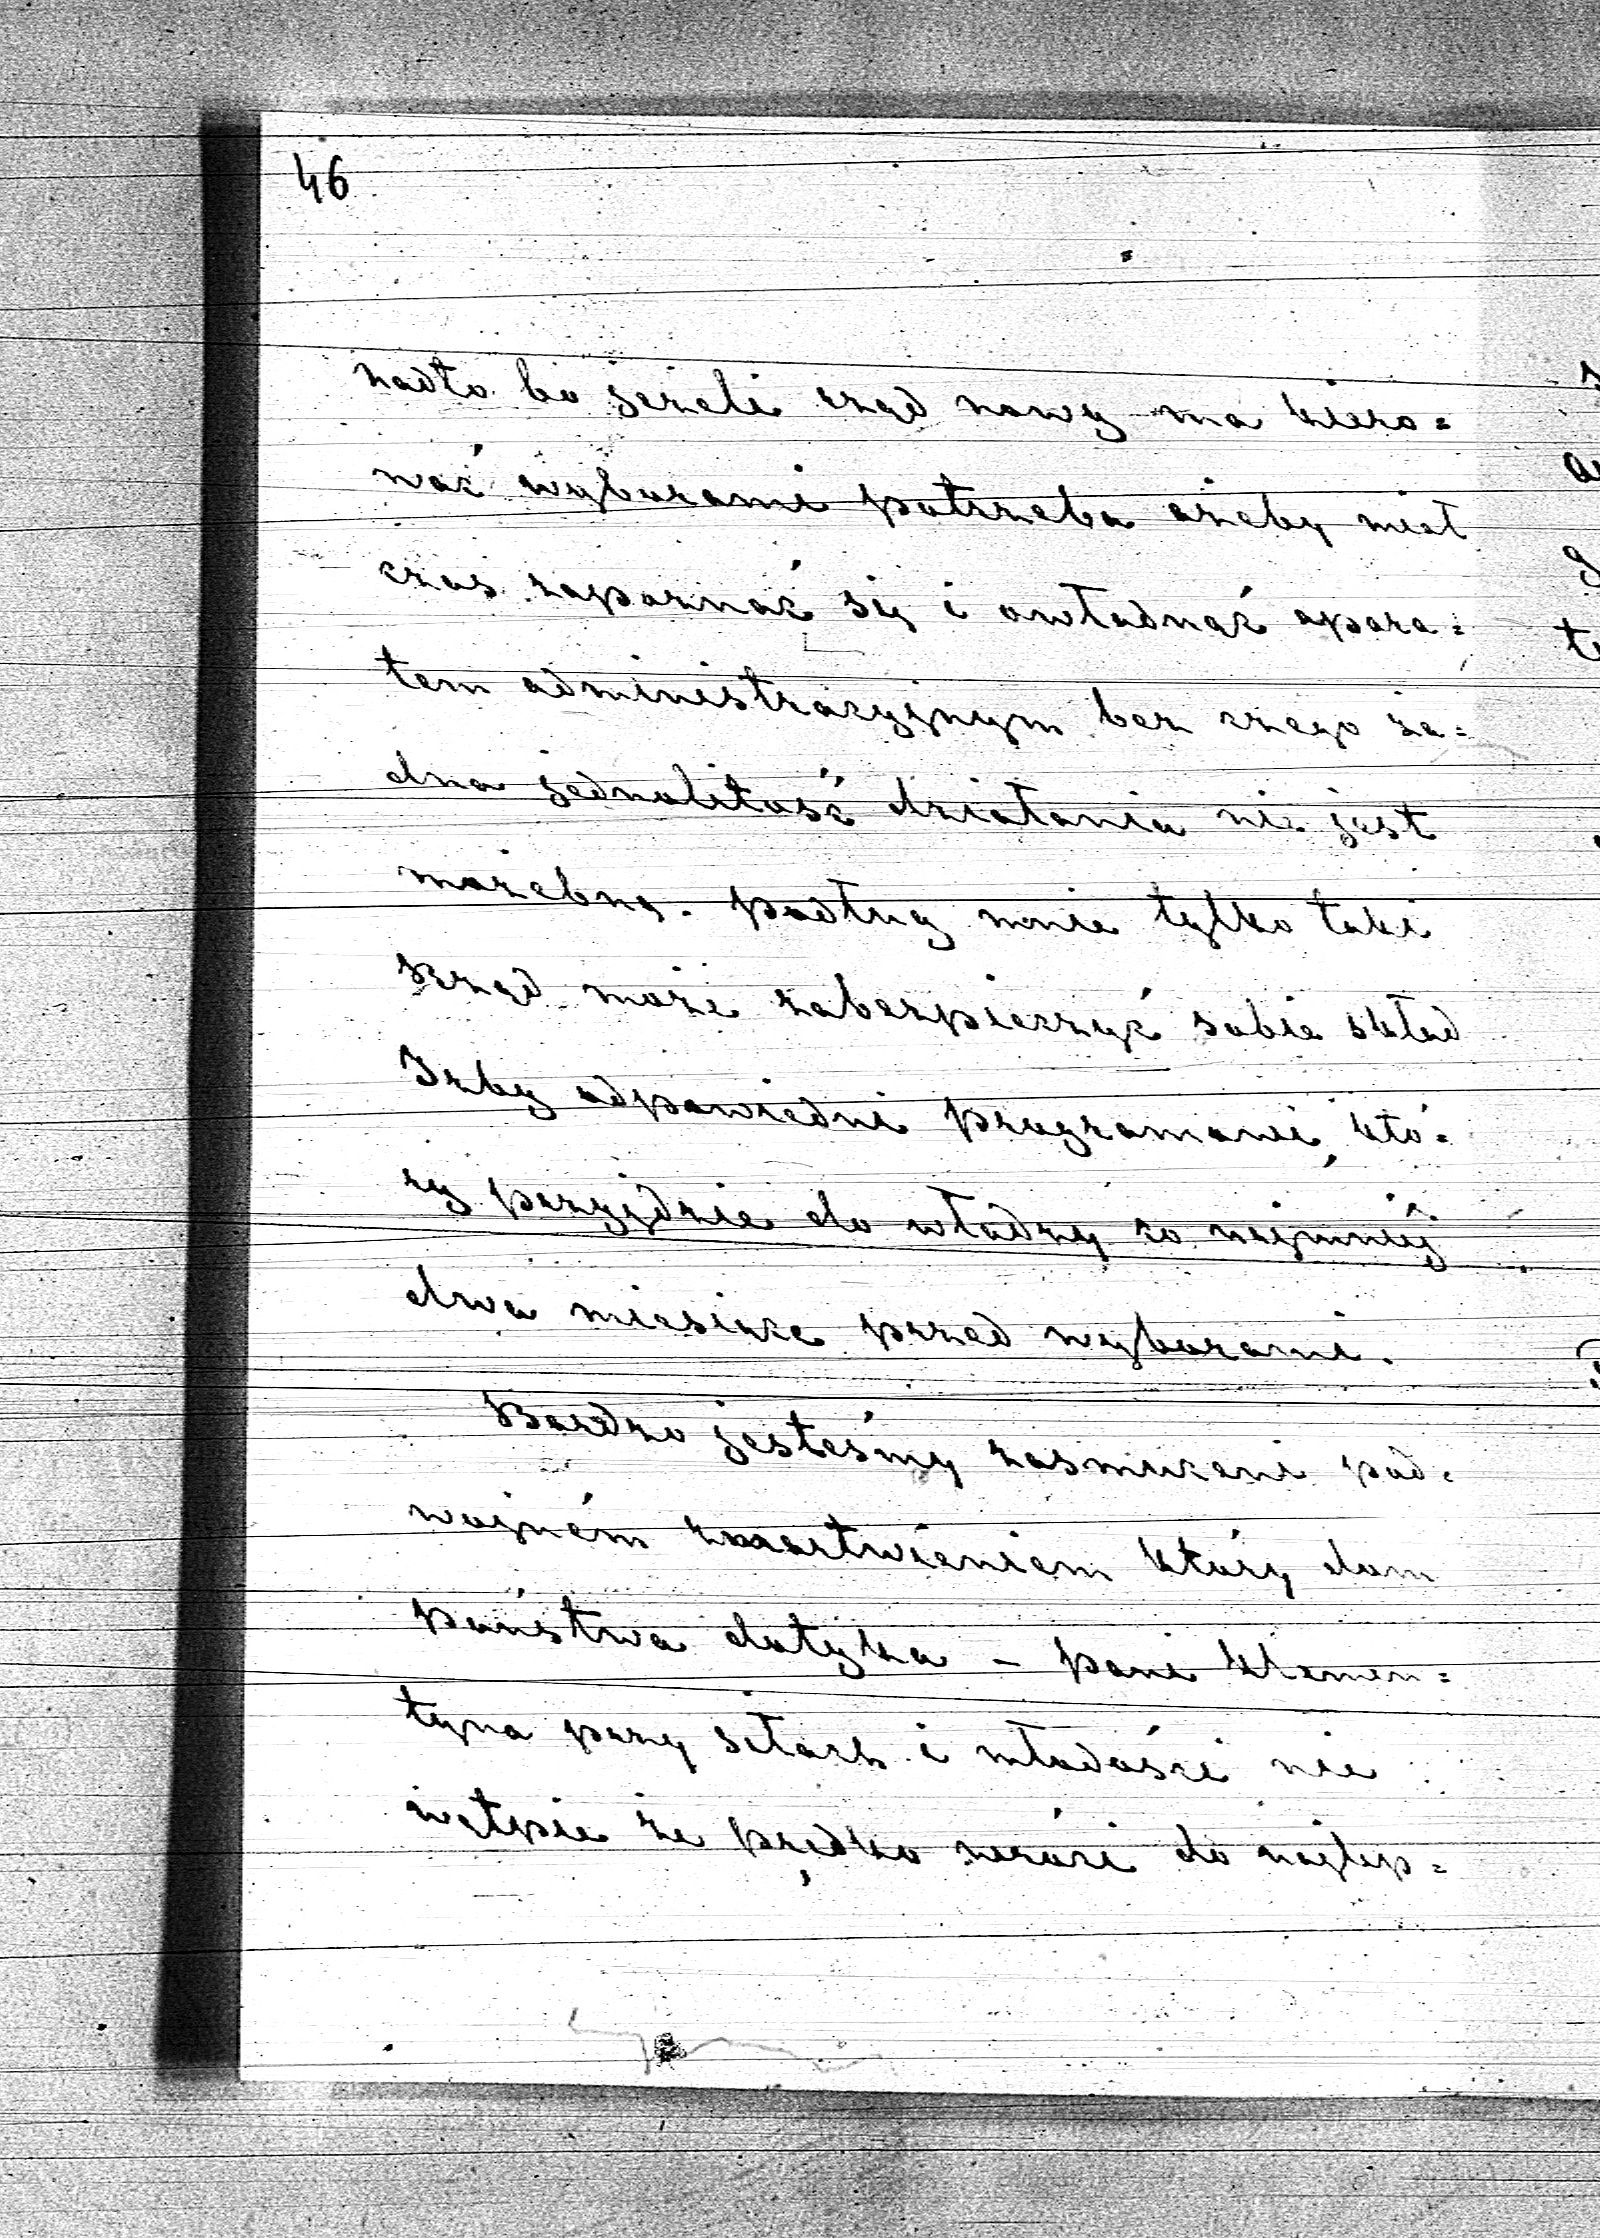 46
nadto bo jeżeli rząd nowy ma kiero=
wać wyborami potrzeba ażeby miał
czas zapoznać się i owładnąć apara=
tem administracyjnym bez czego ża=
dna jednolitość działania nie jest
możebną. podług mnie tylko taki
Rząd może zabezpieczyć sobie skład
Izby odpowiedni programowi, któ=
ry przyjdzie do władzy co najmniéj
dwa miesiące przed wyborami.
Bardzo jesteśmy zasmuceni pod=
wojném zmartwieniem który dom
państwa dotyka - pani Klemen=
tyna przy siłach i młodości nie
wątpię że prędko wróci do najlep=